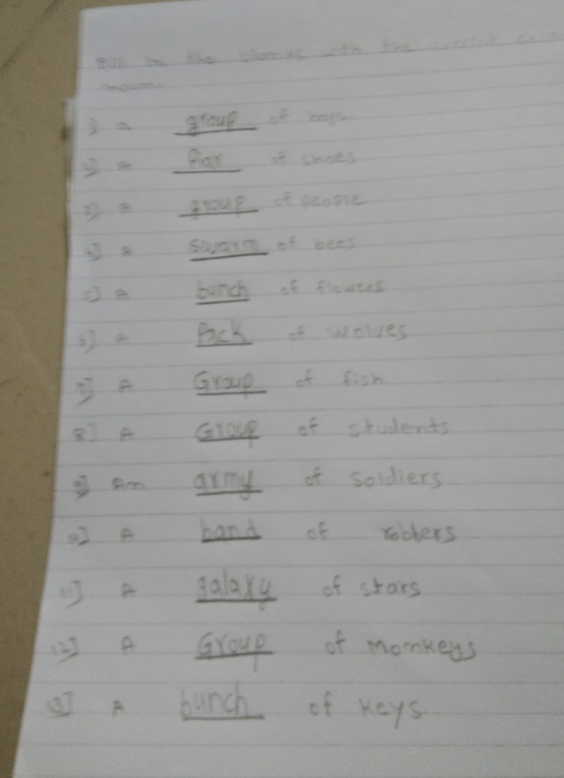 Fill in the blanks with the correct
noun
1) a group of boys
2) a Pair of shoes
3) a group of people
4) a swarm of bees
5) A bunch of flowers
6) A Pack of wolves
7) A Group of fish
8) A Group of students
9) An army of soldiers
10) A band of robbers
11) A galaxy of stars
12) A Group of Monkeys
13) A bunch of keys